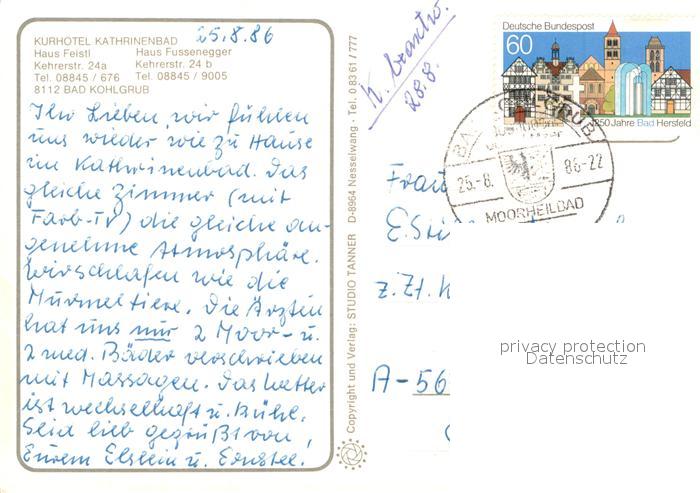 25.8.86
KURHOTEL KATHRINENBAD
Haus Feistl Haus Fussenegger
Kehrerstr. 24a Kehrerstr. 24 b
Tel. 08845 / 676 Tel. 08845 / 9005
8112 BAD KOHLGRUB
Ihr Lieben, wir fühlen
uns wieder wie zu Hause
im Kathrinenbad. Das
gleiche Zimmer (mit
Farb-TV) die gleiche an-
genehme Atmosphäre.
Wir schlafen wie die
Murmeltiere. Die Ärztin
hat uns nur 2 Moor- u.
2 med. Bäder verschrieben
mit Massagen. Das Wetter
ist wechselhaft u. kühl.
Seid lieb gegrüßt von
Eurem
Copyright und Verlag: STUDIO TANNER D-8964 Nesselwang · Tel. 0 83 61 / 777
28.8.
Deutsche Bundespost
60
1250 Jahre Bad Hersfeld
25.-8. 86-22
MOORHEILBAD
Frau
E.
z.Zt.
A-56
privacy protection
Datenschutz